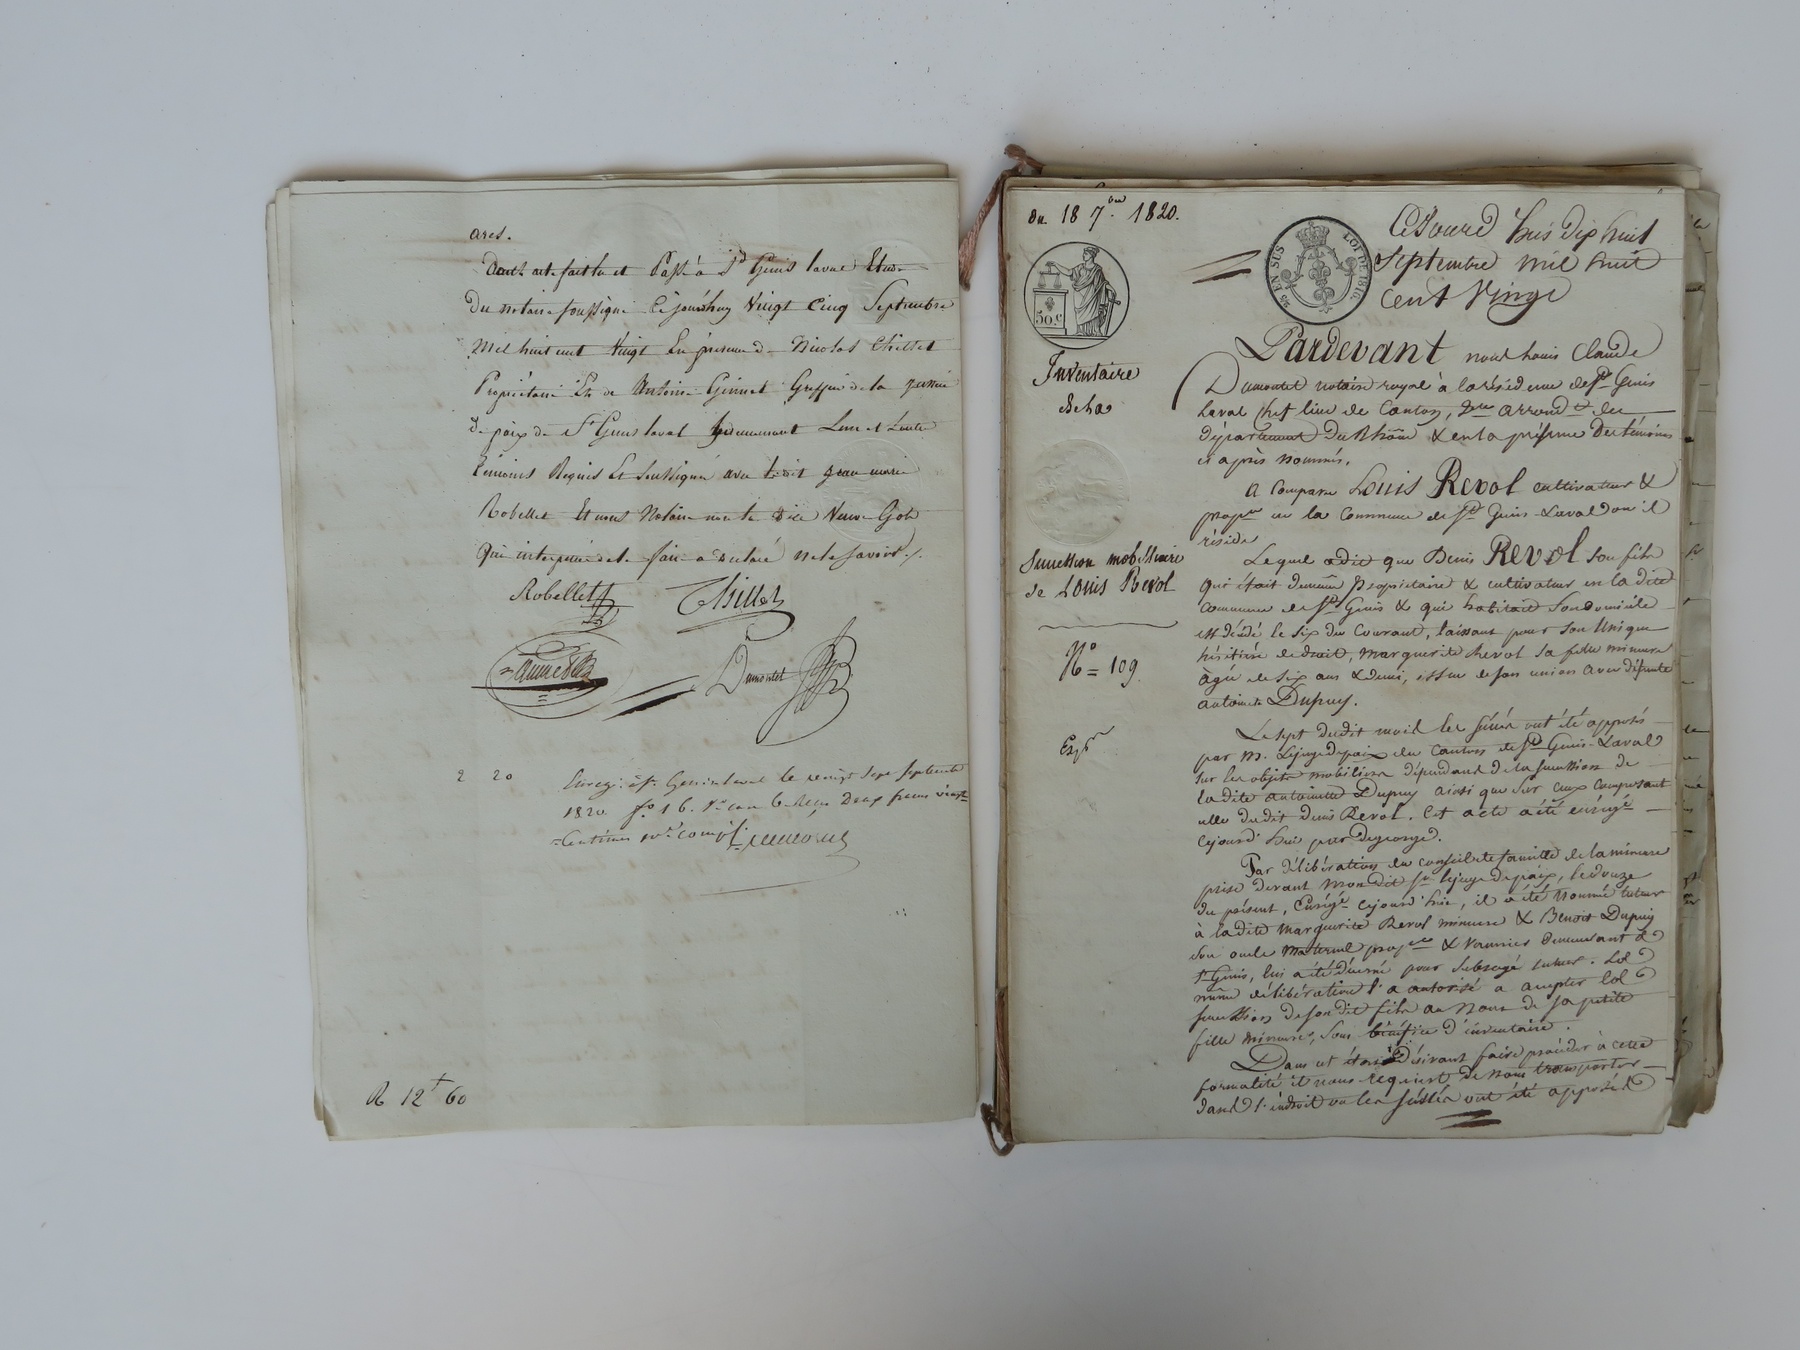 ares.
Dont acte fait lu et Passé à St Genis laval Etude
Du notaire soussigné Ce jourdhuy Vingt Cinq Septembre
Mil huit cent Vingt En présence de Nicolas Chillet
Propriétaire Et de Antoine Greffier de la justice
de paix de St Genis laval y demeurant L'un et L'autre
témoins Requis Et Soussignés avec ledit jean marie
Robellet Et nous Notaire non la dite Veuve
Qui interpellée de le faire a déclaré ne le savoir ./.
Robellet
Chillet
Dumontet
2 20
Enreg. à St. Genis laval le vingt sept septembre
1820 fo. 16. Vo. case 6. Reçu Deux francs vingt
Centimes
R 12 f 60
du 18 7bre 1820.
Cejourd huis dix huit
Septembre mil huit
Cent Vingt
25 EN SUS
LOI DE 1816.
50.c
Pardevant nous Louis Claude
Inventaire
de la
Dumontet notaire royal à la résidence de St Genis
Laval chef lieu de Canton, arrondt du
département du Rhône & en la présence des témoins
ci après nommés.
A comparu Louis Revol cultivateur &
propre en la Commune de St Genis-Laval où il
réside
Succession mobiliaire
de Louis Revol
Lequel a dit que Denis Revol son fils
qui était demême propriétaire & cultivateur en la dite
Commune de St Genis & qui habitait son domicile
est décédé le six du Courant, laissant pour son Unique
héritière de droit, Marguerite Revol sa fille mineure
âgée de six ans & demi, issue de son union avec défunte
antoinette Dupuy.
No 109
Expn
Le sept dudit mois les scellés ont été apposés
par M. Le juge de paix du Canton de St Genis-Laval
sur les objets mobiliers dépendans de la succession de
la dite antoinette Dupuy ainsi que sur ceux composant
celle du dit denis Revol. Cet acte a été enrégé
cejourd'hui par degeorges.
Par délibération du conseil de famille de la mineure
prise devant mon dit sr le juge de paix, le douze
du présent, Enrégé cejourd'hui, il a été nommé tuteur
à la dite Marguerite Revol mineure & Benoit Dupuy
son oncle Maternel propre & Vannier demeurant à
St Genis, lui a été donné pour subrogé tuteur. La
même délibération l'a autorisé à accepter la
succession de son dit fils au Nom de sa petite
fille mineure, sous bénéfice d'inventaire.
Dans cet état désirant faire procéder à cette
formalité il nous requiert de nous transporter
dans l'endroit où les scellés ont été apposés